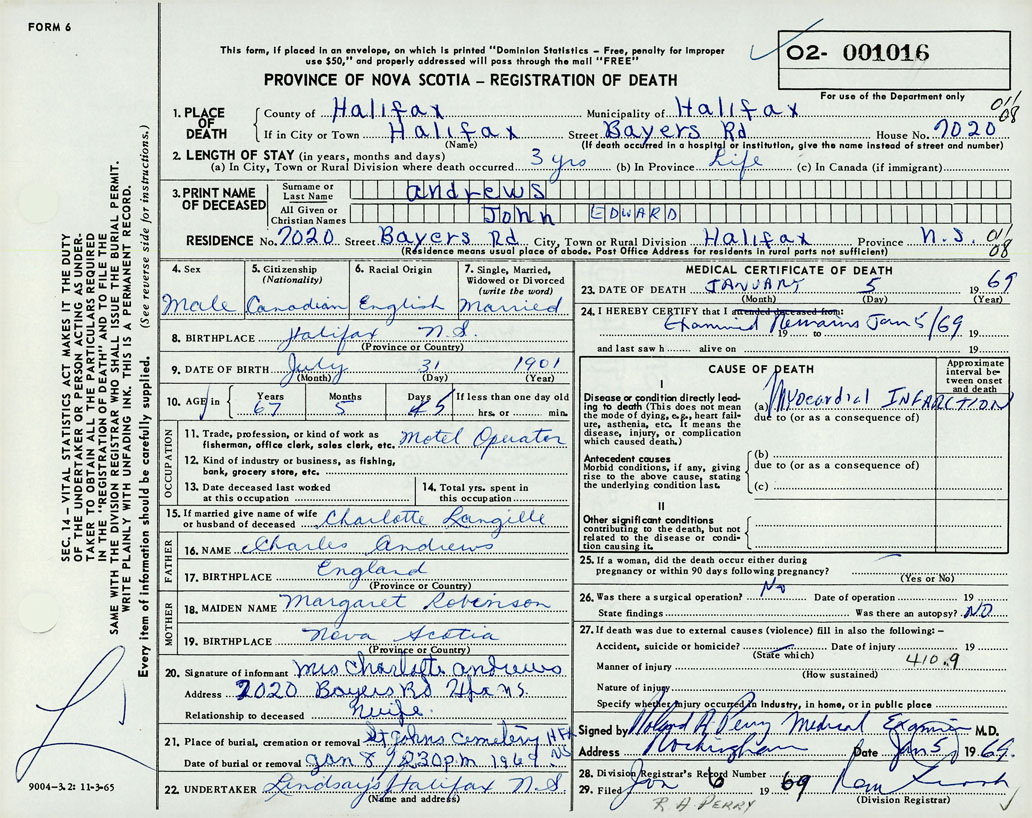 FORM 6
This form, if placed in an envelope, on which is printed "Dominion Statistics – Free, penalty for improper
use $50," and properly addressed will pass through the mail "FREE"
PROVINCE OF NOVA SCOTIA – REGISTRATION OF DEATH
02- 001016
For use of the Department only
SEC. 14 – VITAL STATISTICS ACT MAKES IT THE DUTY
OF THE UNDERTAKER OR PERSON ACTING AS UNDER-
TAKER TO OBTAIN ALL THE PARTICULARS REQUIRED
IN THE "REGISTRATION OF DEATH" AND TO FILE THE
SAME WITH THE DIVISION REGISTRAR WHO SHALL ISSUE THE BURIAL PERMIT.
WRITE PLAINLY WITH UNFADING INK. THIS IS A PERMANENT RECORD.
Every item of information should be carefully supplied. (See reverse side for instructions.)
1. PLACE OF DEATH County of Halifax Municipality of Halifax 011/08
If in City or Town Halifax Street Bayers Rd House No. 7020
(Name) (If death occurred in a hospital or institution, give the name instead of street and number)
2. LENGTH OF STAY (in years, months and days)
(a) In City, Town or Rural Division where death occurred 3 yrs (b) In Province Life (c) In Canada (if immigrant)
3. PRINT NAME OF DECEASED Surname or Last Name Andrews
All Given or Christian Names John EDWARD
RESIDENCE No. 7020 Street Bayers Rd City, Town or Rural Division Halifax Province N.S. 011/08
(Residence means usual place of abode. Post Office Address for residents in rural parts not sufficient)
4. Sex Male
5. Citizenship (Nationality) Canadian
6. Racial Origin English
7. Single, Married, Widowed or Divorced (write the word) Married
8. BIRTHPLACE Halifax N.S.
(Province or Country)
9. DATE OF BIRTH July 31 1901
(Month) (Day) (Year)
10. AGE in Years 67 Months 5 Days 5 If less than one day old
hrs. or min.
OCCUPATION
11. Trade, profession, or kind of work as fisherman, office clerk, sales clerk, etc. Motel Operator
12. Kind of industry or business, as fishing, bank, grocery store, etc.
13. Date deceased last worked at this occupation
14. Total yrs. spent in this occupation
15. If married give name of wife or husband of deceased Charlotte Langille
FATHER
16. NAME Charles Andrews
17. BIRTHPLACE England
(Province or Country)
MOTHER
18. MAIDEN NAME Margaret Robinson
19. BIRTHPLACE Nova Scotia
(Province or Country)
20. Signature of informant Mrs Charlotte Andrews
Address 7020 Bayers Rd Hfx N.S.
Relationship to deceased Wife.
21. Place of burial, cremation or removal St Johns Cemetery Hfx NS
Date of burial or removal Jan 8 / 230 p.m. 1969
22. UNDERTAKER Lindsay's Halifax N.S
(Name and address)
9004-3.2: 11-3-65
MEDICAL CERTIFICATE OF DEATH
23. DATE OF DEATH JANUARY 5 1969
(Month) (Day) (Year)
24. I HEREBY CERTIFY that I attended deceased from:
Examined Remains Jan 5/69
19 to 19
and last saw h alive on 19
CAUSE OF DEATH
Approximate interval be-tween onset and death
I
Disease or condition directly lead-
ing to death (This does not
mean the mode of dying, e.g., heart fail-
ure, asthenia, etc. It means the
disease, injury, or complication
which caused death.)
(a) Myocardial INFARCTION
due to (or as a consequence of)
Antecedent causes
Morbid conditions, if any, giving
rise to the above cause, stating
the underlying condition last.
(b)
due to (or as a consequence of)
(c)
II
Other significant conditions
contributing to the death, but not
related to the disease or condi-
tion causing it.
25. If a woman, did the death occur either during
pregnancy or within 90 days following pregnancy?
(Yes or No)
26. Was there a surgical operation? No Date of operation 19
State findings Was there an autopsy? NO
27. If death was due to external causes (violence) fill in also the following: –
Accident, suicide or homicide? Date of injury 19
(State which)
Manner of injury 410.9
(How sustained)
Nature of injury
Specify whether injury occurred in Industry, in home, or in public place
Signed by Roland A Perry Medical Examiner M.D.
Address Rockingham Date Jan 5 1969.
28. Division Registrar's Record Number
29. Filed Jan 6 1969
(Division Registrar)
R A PERRY